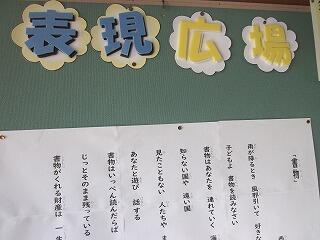 表現広場
「書物」
雨が降るとき 風邪引いて 好きな
子どもよ 書物を読みなさい
書物はあなたを 連れていく 海
知らない国や 遠い国
見たこともない 人たちや ま
あなたと遊び 話する
書物はいっぺん読んだらば
じっとそのまま残っている
書物がくれる財産は 一生